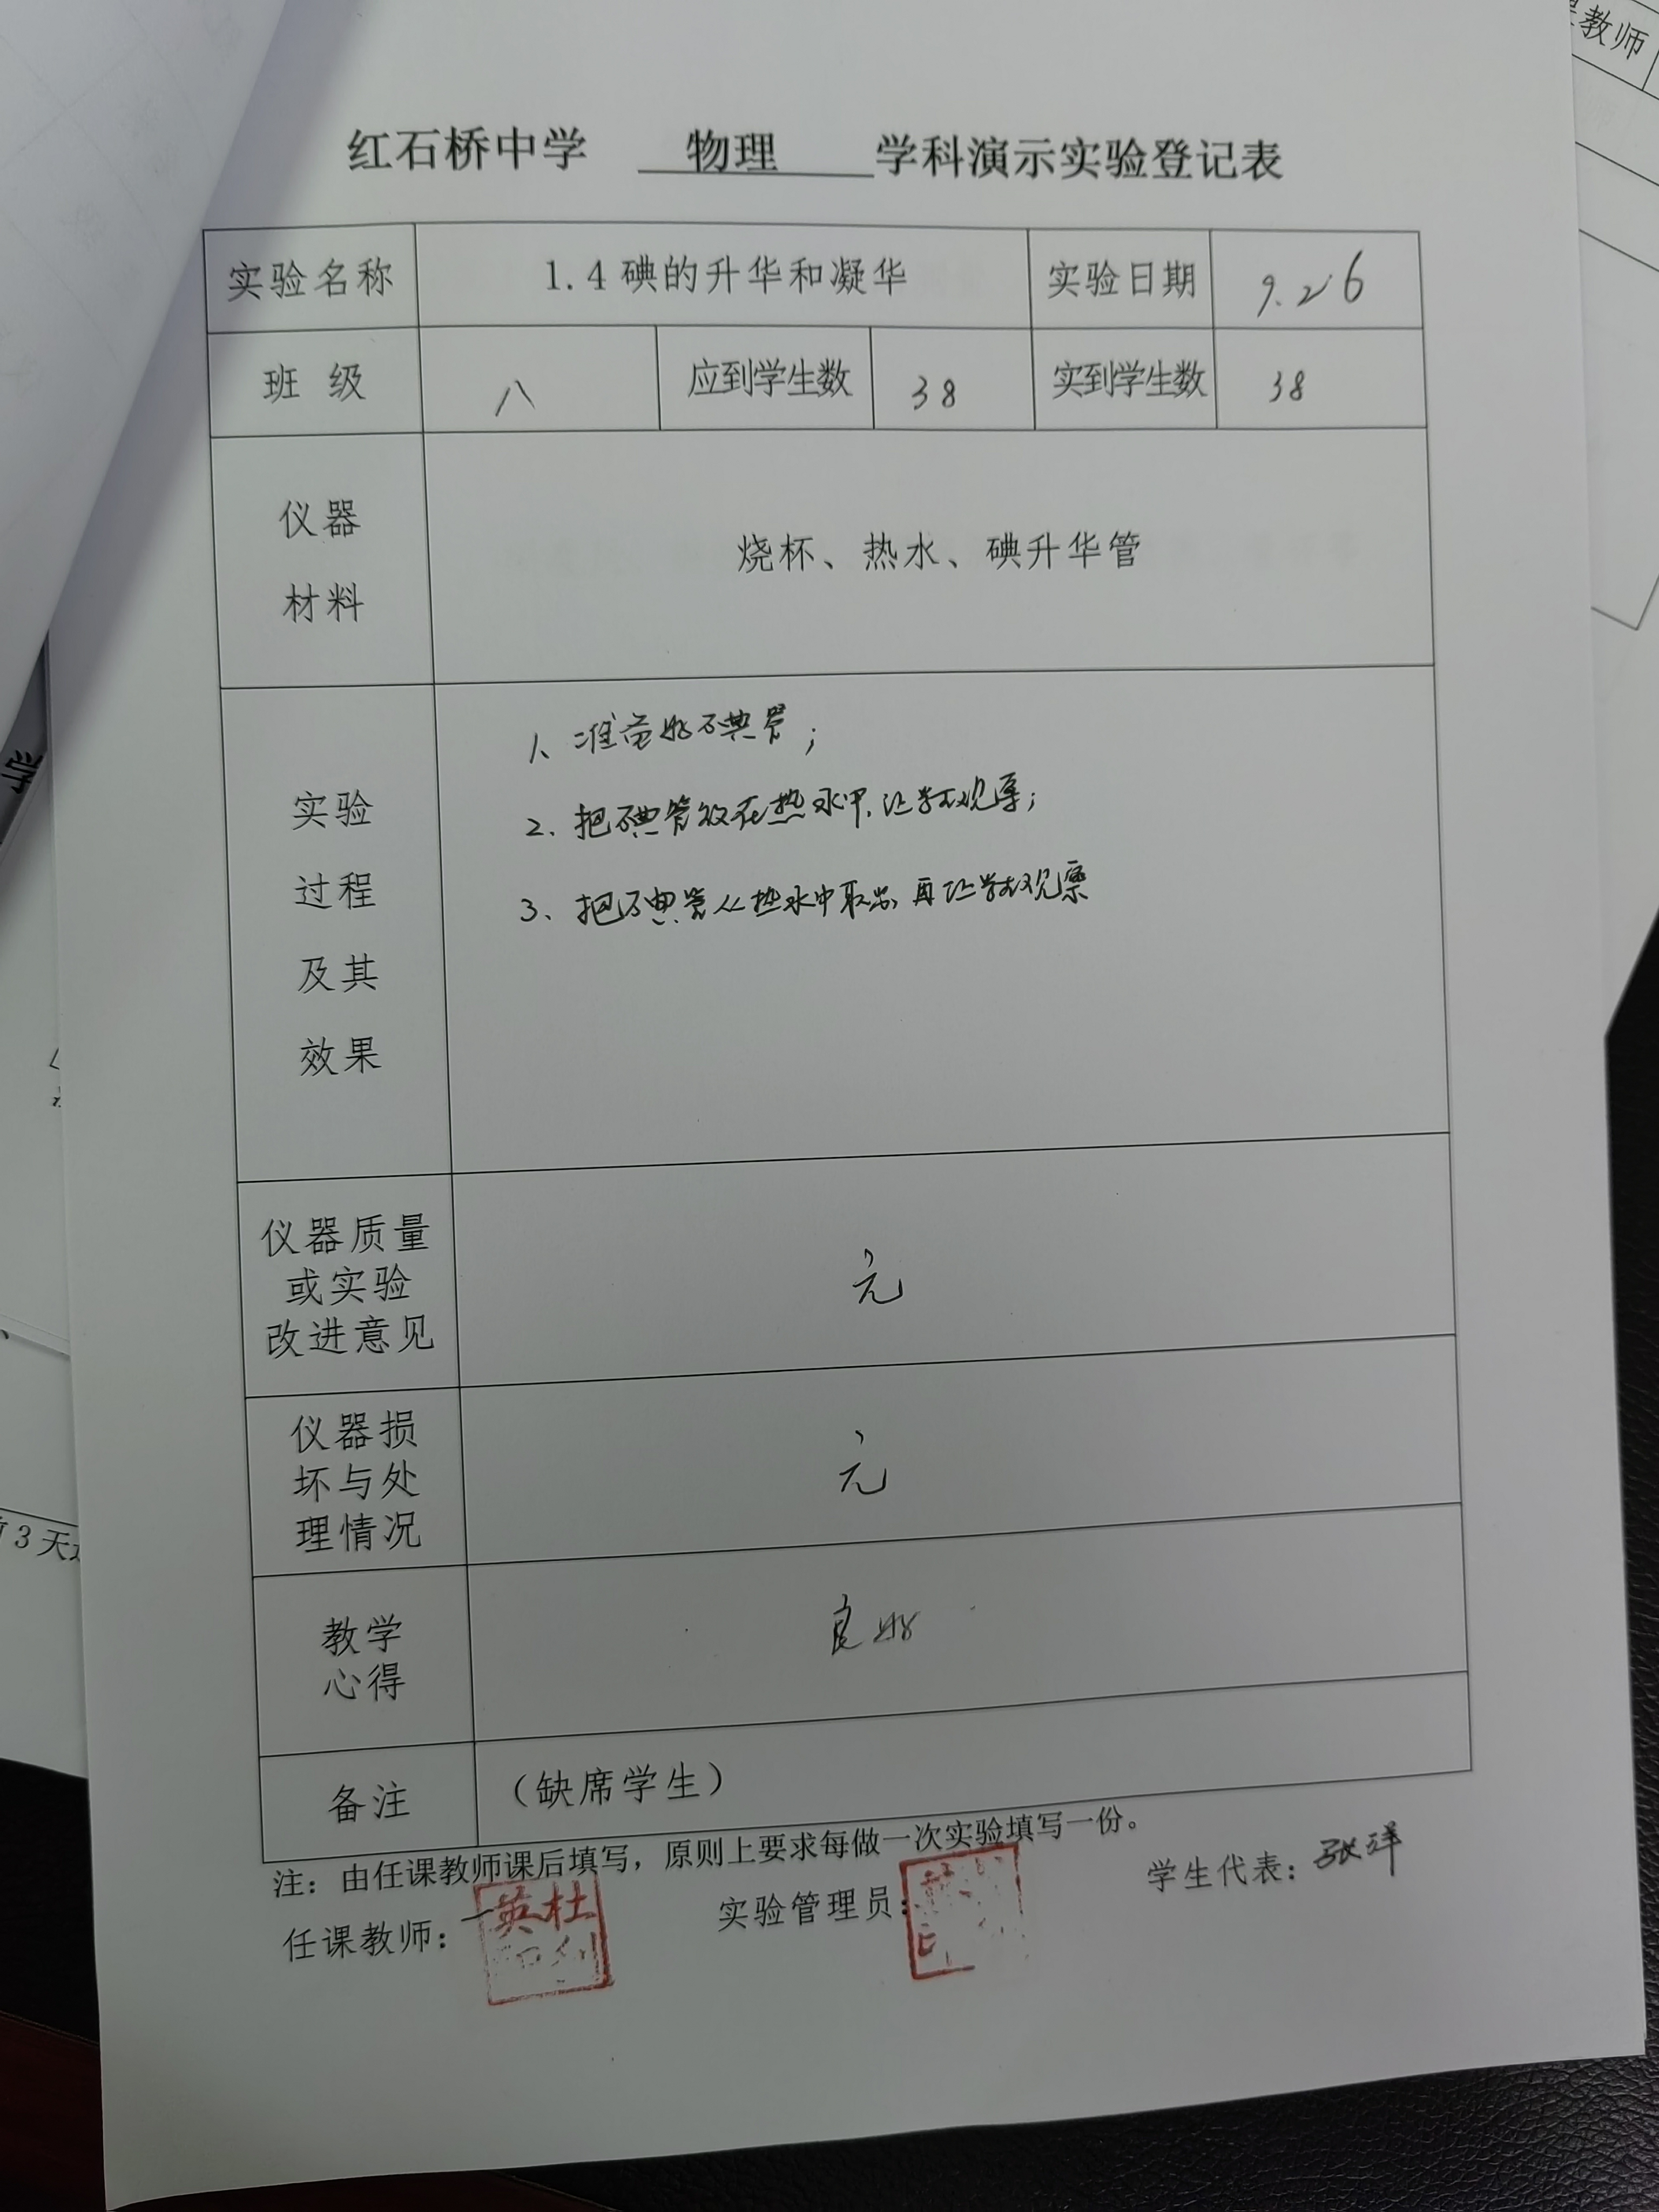 红石桥中学 物理 学科演示实验登记表
实验名称 1.4碘的升华和凝华 实验日期 9.26
班级 八 应到学生数 38 实到学生数 38
仪器
材料
烧杯、热水、碘升华管
实验
过程
及其
效果
1、准备好碘管；
2、把碘管放在热水中,让学生观察；
3、把碘管从热水中取出,再让学生观察
仪器质量
或实验
改进意见
无
仪器损
坏与处
理情况
无
教学
心得
良好
备注 （缺席学生）
注：由任课教师课后填写，原则上要求每做一次实验填写一份。
任课教师： 实验管理员： 学生代表：张洋
英杜
教师
学
3天